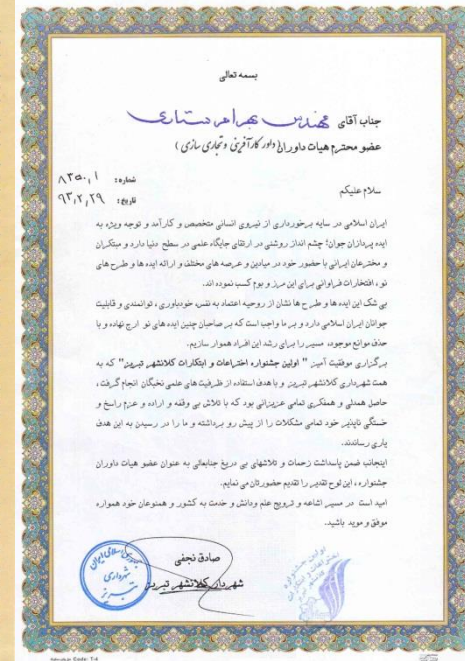 بسمه تعالی
جناب آقای مهندس بهرام ستاری
عضو محترم هیات داوران (داور کارآفرینی و تجاری سازی)
شماره : ۸۳۵۰,۱
تاریخ : ۹۳,۲,۲۹
سلام علیکم
ایران اسلامی در سایه برخورداری از نیروی انسانی متخصص و کارآمد و توجه ویژه به
ایده پردازان جوان؛ چشم انداز روشنی در ارتقای جایگاه علمی در سطح دنیا دارد و مبتکران
و مخترعان ایرانی با حضور خود در میادین و عرصه های مختلف و ارائه ایده ها و طرح های
نو ، افتخارات فراوانی برای این مرز و بوم کسب نموده اند.
بی شک این ایده ها و طرح ها نشان از روحیه اعتماد به نفس، خودباوری ، توانمندی و قابلیت
جوانان ایران اسلامی دارد و بر ما واجب است که بر صاحبان چنین ایده های نو ارج نهاده و با
حذف موانع موجود، مسیر را برای رشد این افراد هموار سازیم.
برگزاری موفقیت آمیز " اولین جشنواره اختراعات و ابتکارات کلانشهر تبریز" که به
همت شهرداری کلانشهر تبریز و با هدف استفاده از ظرفیت های علمی نخبگان انجام گرفت ،
حاصل همدلی و همفکری تمامی عزیزانی بود که با تلاش بی وقفه و اراده و عزم راسخ و
خستگی ناپذیر خود تمامی مشکلات را از پیش رو برداشته و ما را در رسیدن به این هدف
یاری رساندند.
اینجانب ضمن پاسداشت زحمات و تلاشهای بی دریغ جنابعالی به عنوان عضو هیات داوران
جشنواره ، این لوح تقدیر را تقدیم حضورتان می نمایم.
امید است در مسیر اشاعه و ترویج علم ودانش و خدمت به کشور و همنوعان خود همواره
موفق و موید باشید.
صادق نجفی
شهردار کلانشهر تبریز
جمهوری اسلامی ایران
شهرداری
تبریز
اولین جشنواره